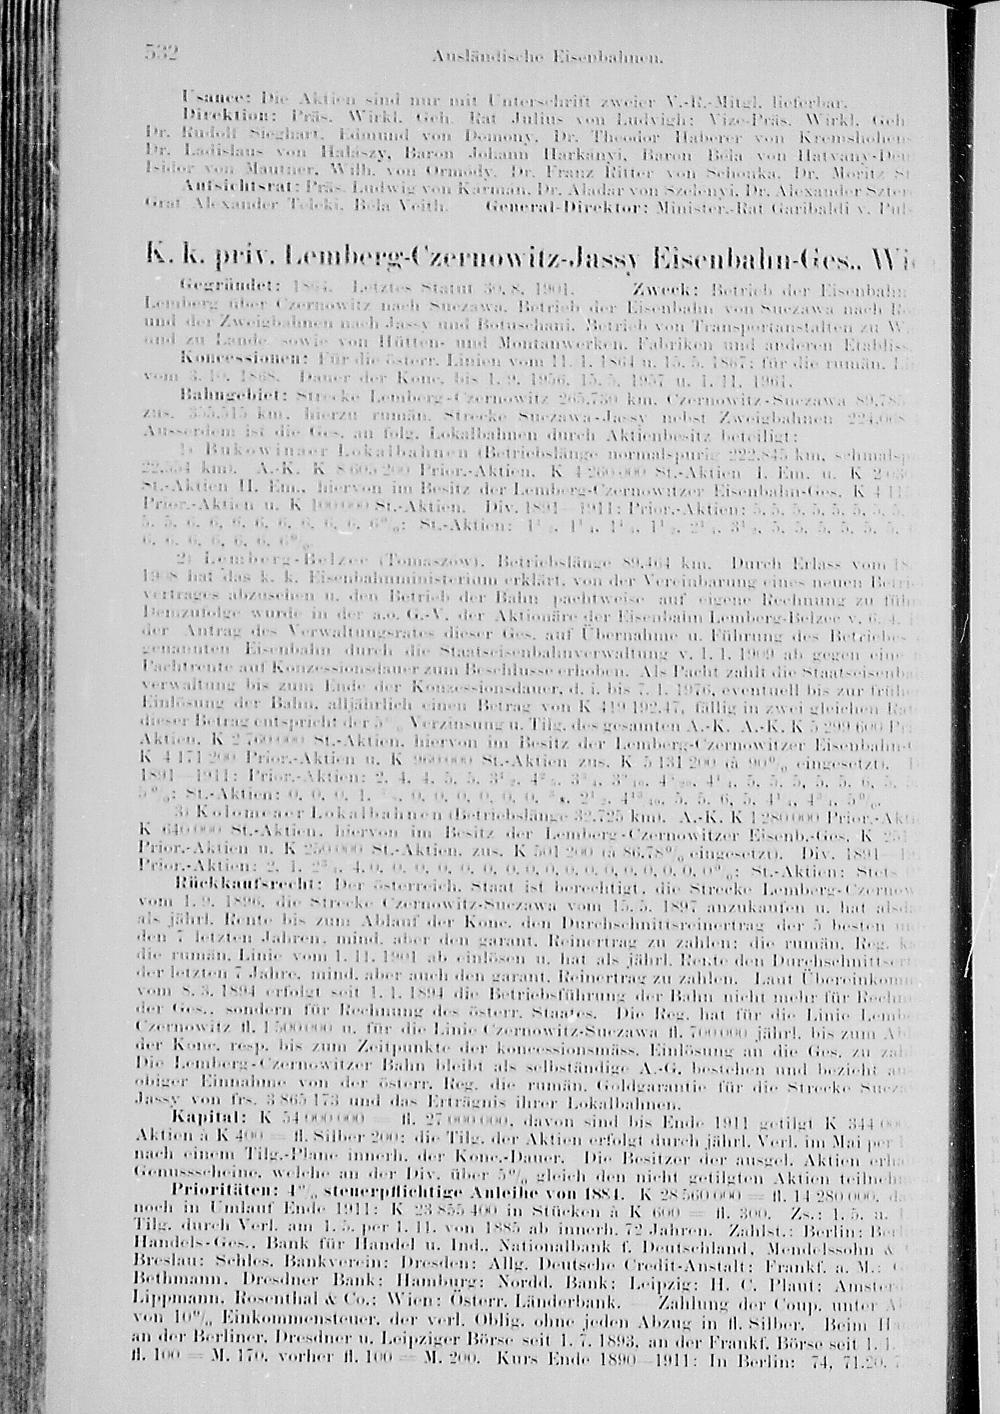 532 Ausländische Eisenbahnen.
Usance: Die Aktien sind nur mit Unterschrift zweier V.-R.-Mitgl. lieferbar.
Direktion: Präs. Wirkl. Geh. Rat Julius von Ludvigh; Vize-Präs. Wirkl. Geh
Dr. Rudolf Sieghart, Edmund von Domony, Dr. Theodor Haberer von Kremshohens
Dr. Ladislaus von Halászy, Baron Johann Harkányi, Baron Béla von Hatvany-Deu
Isidor von Mautner, Wilh. von Ormódy, Dr. Franz Ritter von Schonka, Dr. Moritz St
Aufsichtsrat: Präs. Ludwig von Kármán, Dr. Aladar von Szelenyi, Dr. Alexander Szter
Graf Alexander Teleki, Béla Veith. General-Direktor: Minister.-Rat Garibaldi v. Pul
K. k. priv. Lemberg-Czernowitz-Jassy Eisenbahn-Ges., Wi
Gegründet: Letztes Statut 30. 8. 1901. Zweck: Betrieb der Eisenbahn
Lemberg über Czernowitz nach Suczawa, Betrieb der Eisenbahn von Suczawa nach
und der Zweigbahnen nach Jassy und Botuschani, Betrieb von Transportanstalten zu W.
und zu Lande, sowie von Hütten- und Montanwerken, Fabriken und anderen Etabliss.
Koncessionen: Für die österr. Linien vom 11. 1. 1864 u. 15. 5. 1867; für die rumän. Li
vom 1868. Dauer der Konc. bis 1. 9. 1956, 15. 5. 1957 u. 1. 11. 1961.
Bahngebiet: Strecke Lemberg-Czernowitz km, Czernowitz-Suczawa
zus. 355.515 km, hierzu rumän. Strecke Suczawa-Jassy nebst Zweigbahnen
Ausserdem ist die Ges. an folg. Lokalbahnen durch Aktienbesitz beteiligt:
1) Bukowinaer Lokalbahnen (Betriebslänge normalspurig 222.845 km, schmalsp
km). A.-K. K Prior.-Aktien, K St.-Aktien I. Em. u. K
St.-Aktien II. Em., hiervon im Besitz der Lemberg-Czernowitzer Eisenbahn-Ges. K
Prior.-Aktien u. K St.-Aktien. Div. 1891–1911: Prior.-Aktien: 5, 5, 5, 5, 5, 5, 5,
5, 5, 6, 6, 6, 6, 6, 6, 6, 6, 6%; St.-Aktien:
6, 6, 6, 6, 6, 6, 6%.
2) Lemberg-Belzec (Tomaszów). Betriebslänge 89.464 km. Durch Erlass vom
1908 hat das k. k. Eisenbahnministerium erklärt, von der Vereinbarung eines neuen Betrie
vertrages abzusehen u. den Betrieb der Bahn pachtweise auf eigene Rechnung zu führ
Demzufolge wurde in der a.o. G.-V. der Aktionäre der Eisenbahn Lemberg-Belzec v. 6. 4.
der Antrag des Verwaltungsrates dieser Ges. auf Übernahme u. Führung des Betriebes
genannten Eisenbahn durch die Staatseisenbahnverwaltung v. 1. 1. 1909 ab gegen eine
Pachtrente auf Konzessionsdauer zum Beschlusse erhoben. Als Pacht zahlt die Staatseisenba
verwaltung bis zum Ende der Konzessionsdauer, d. i. bis 7. 1. 1976, eventuell bis zur frühe
Einlösung der Bahn, alljährlich einen Betrag von K 419 192.47, fällig in zwei gleichen Rat
dieser Betrag entspricht der 5% Verzinsung u. Tilg. des gesamten A.-K. A.-K. K 5 299 600 Pr
Aktien, K 2 700 000 St.-Aktien, hiervon im Besitz der Lemberg-Czernowitzer Eisenbahn-
K 4 171 200 Prior.-Aktien u. K 960 000 St.-Aktien zus. K 5 131 200 (à 90% eingesetzt).
1891–1911: Prior.-Aktien: 2, 4, 4, 5, 5,
5%; St.-Aktien: 0, 0, 0, 1,
3) Kolomeaer Lokalbahnen (Betriebslänge 32.725 km). A.-K. K 1 280 000 Prior.-Akti
K 640 000 St.-Aktien, hiervon im Besitz der Lemberg-Czernowitzer Eisenb.-Ges. K 251
Prior.-Aktien u. K 250 000 St.-Aktien, zus. K 501 200 (à 86.78% eingesetzt). Div. 1891–
Prior.-Aktien: 2, 1, 4, 0, 0, 0, 0, 0, 0, 0, 0, 0, 0, 0, 0, 0, 0, 0%; St.-Aktien: Stets
Rückkaufsrecht: Der österreich. Staat ist berechtigt, die Strecke Lemberg-Czernow
vom 1. 9. 1896, die Strecke Czernowitz-Suczawa vom 15. 5. 1897 anzukaufen u. hat alsda
als jährl. Rente bis zum Ablauf der Konc. den Durchschnittsreinertrag der 5 besten
den 7 letzten Jahren, mind. aber den garant. Reinertrag zu zahlen; die rumän. Reg. k
die rumän. Linie vom 1. 11. 1901 ab einlösen u. hat als jährl. Rente den Durchschnittsert
der letzten 7 Jahre, mind. aber auch den garant. Reinertrag zu zahlen. Laut Übereinkom
vom 8. 3. 1894 erfolgt seit 1. 1. 1894 die Betriebsführung der Bahn nicht mehr für Rechn
der Ges., sondern für Rechnung des österr. Staates. Die Reg. hat für die Linie Lemb
Czernowitz fl. 1 500 000 u. für die Linie Czernowitz-Suczawa fl. 700 000 jährl. bis zum Abl
der Konc. resp. bis zum Zeitpunkte der koncessionsmäss. Einlösung an die Ges. zu zahl
Die Lemberg-Czernowitzer Bahn bleibt als selbständige A.-G. bestehen und bezieht au
obiger Einnahme von der österr. Reg. die rumän. Goldgarantie für die Strecke Sucza
Jassy von frs. 3 865 173 und das Erträgnis ihrer Lokalbahnen.
Kapital: K 54 000 000 = fl. 27 000 000, davon sind bis Ende 1911 getilgt K 344
Aktien à K 400 = fl. Silber 200; die Tilg. der Aktien erfolgt durch jährl. Verl. im Mai per 1
nach einem Tilg.-Plane innerh. der Konc.-Dauer. Die Besitzer der ausgel. Aktien erha
Genussscheine, welche an der Div. über 5% gleich den nicht getilgten Aktien teilnehm
Prioritäten: 4% steuerpflichtige Anleihe von 1884. K 28 560 000 = fl. 14 280 000, da
noch in Umlauf Ende 1911: K 23 855 400 in Stücken à K 600 = fl. 300. Zs.: 1. 5. u. 1
Tilg. durch Verl. am 1. 5. per 1. 11. von 1885 ab innerh. 72 Jahren. Zahlst.: Berlin: Berl
Handels-Ges., Bank für Handel u. Ind., Nationalbank f. Deutschland, Mendelssohn &
Breslau: Schles. Bankverein; Dresden: Allg. Deutsche Credit-Anstalt; Frankf. a. M.:
Bethmann, Dresdner Bank; Hamburg: Nordd. Bank; Leipzig: H. C. Plaut; Amster
Lippmann, Rosenthal & Co.; Wien: Österr. Länderbank. Zahlung der Coup. unter A
von 10% Einkommensteuer, der verl. Oblig. ohne jeden Abzug in fl. Silber. Beim Ha
an der Berliner, Dresdner u. Leipziger Börse seit 1. 7. 1893, an der Frankf. Börse seit 1. 1.
fl. 100 = M. 170, vorher fl. 100 = M. 200. Kurs Ende 1890–1911: In Berlin: 74, 71.20,